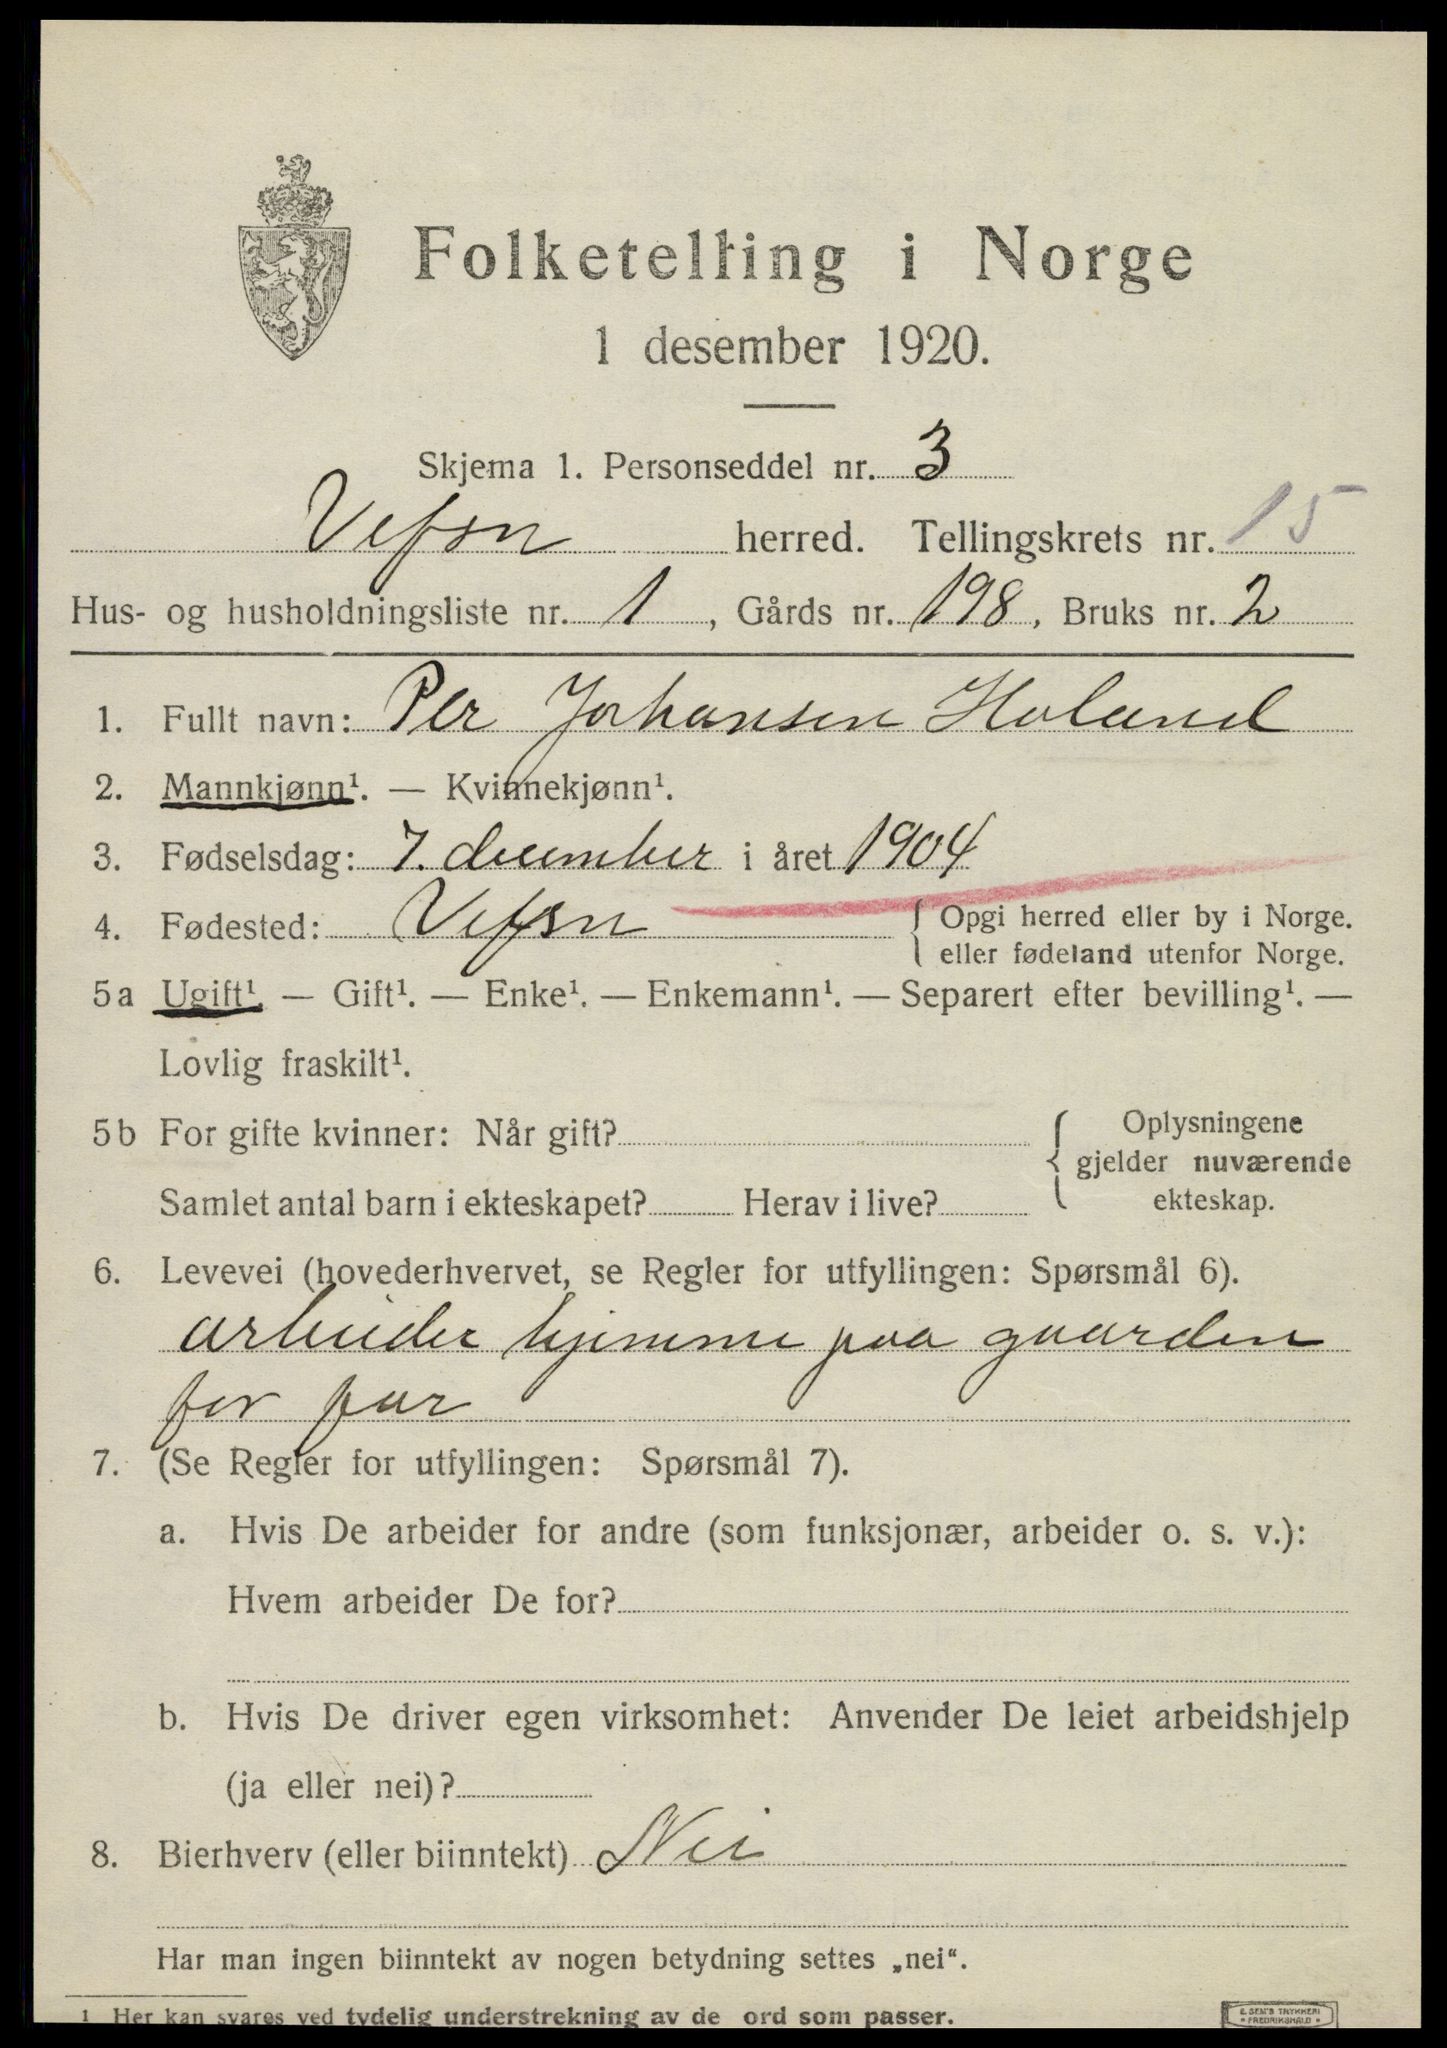 Folketelling i Norge
1 desember 1920.
Skjema 1. Personseddel nr. 3
Vefsn herred. Tellingskrets nr. 15
Hus- og husholdningsliste nr. 1, Gårds nr. 198, Bruks nr. 2
1. Fullt navn: Per Johansen Holand
2. Mannkjønn¹. — Kvinnekjønn¹.
3. Fødselsdag: 7. december i året 1904
4. Fødested: Vefsn { Opgi herred eller by i Norge.
eller fødeland utenfor Norge.
5a Ugift¹ — Gift¹. — Enke¹. — Enkemann¹. — Separert efter bevilling¹. —
Lovlig fraskilt¹.
5b For gifte kvinner: Når gift? { Oplysningene
gjelder nuværende
Samlet antal barn i ekteskapet? Herav i live? ekteskap.
6. Levevei (hovederhvervet, se Regler for utfyllingen: Spørsmål 6).
arbeider hjemme paa gaarden
for far
7. (Se Regler for utfyllingen: Spørsmål 7).
a. Hvis De arbeider for andre (som funksjonær, arbeider o. s. v.):
Hvem arbeider De for?
b. Hvis De driver egen virksomhet: Anvender De leiet arbeidshjelp
(ja eller nei)?
8. Bierhverv (eller biinntekt) Nei
Har man ingen biinntekt av nogen betydning settes „nei“.
¹ Her kan svares ved tydelig understrekning av de ord som passer.
E. SEM'S TRYKKERI
FREDRIKSHALD